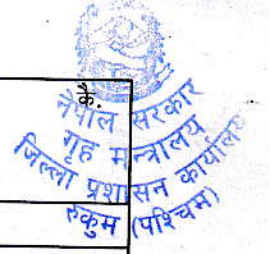 कै.
नेपाल सरकार
गृह मन्त्रालय
जिल्ला प्रशासन कार्यालय
रुकुम (पश्चिम)